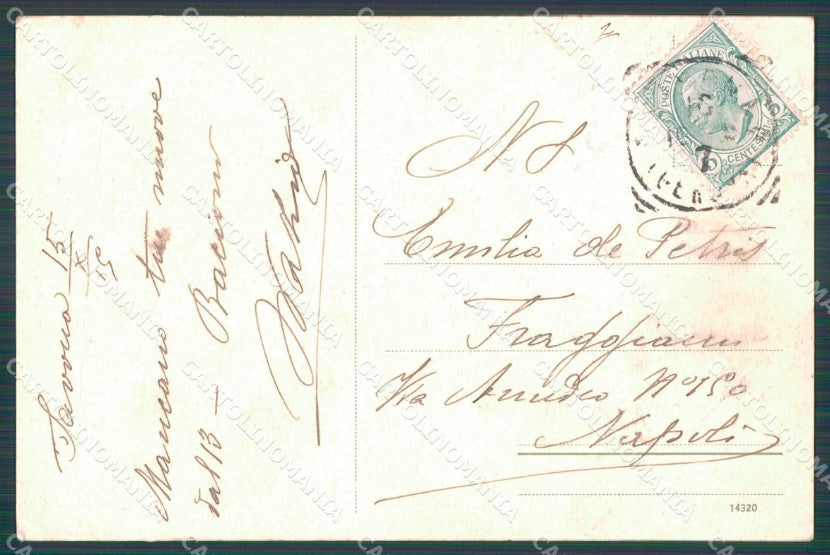 Savona 15/X/15
Mancano tue nuove
dal 13 — Bacioni
N S
Emilia de Petris
Fraggianni
Via Amedeo Nº 150
Napoli
POSTE ITALIANE
CENTESIMI
14320
CARTOLINOMANIA